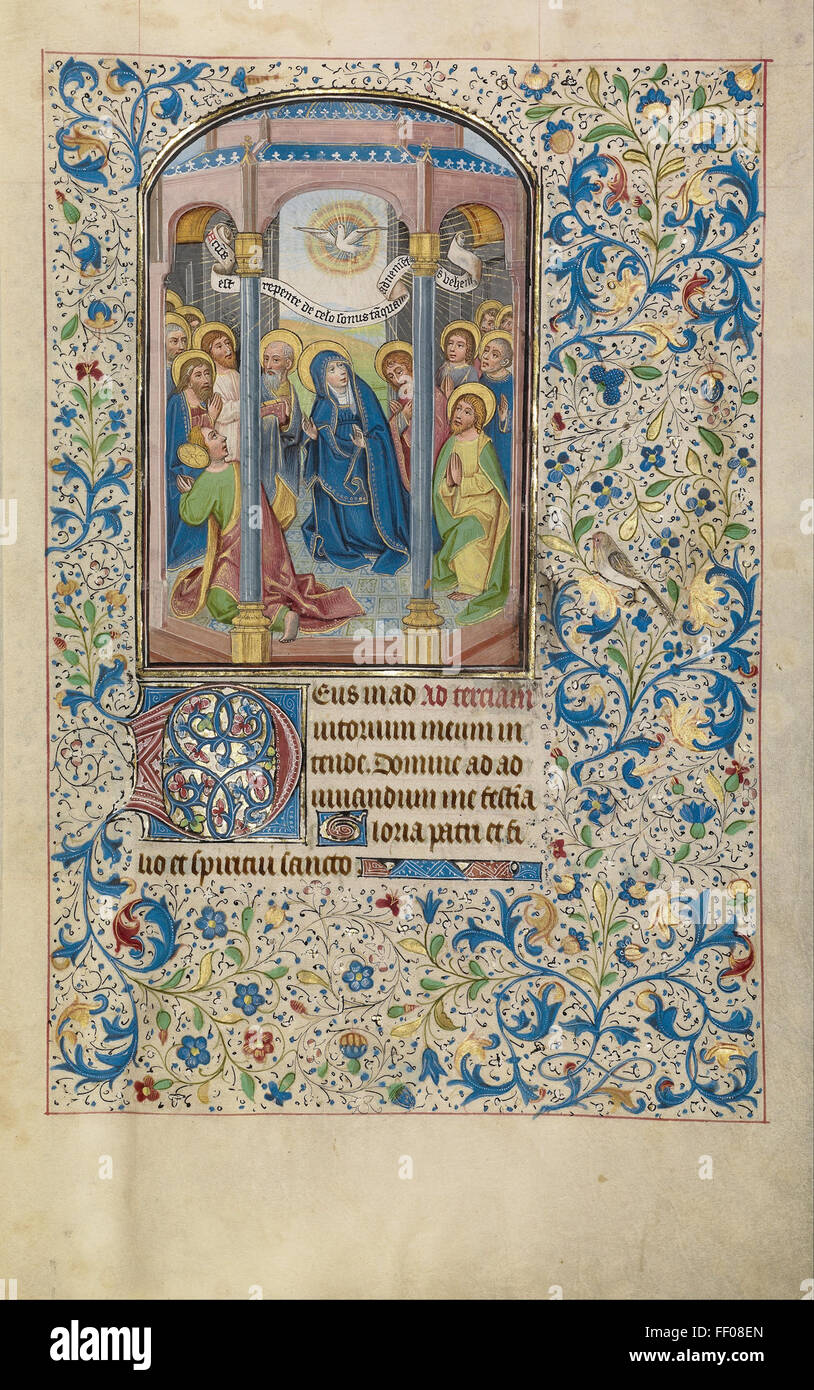 est repente de celo sonus taqua advenietis
Eus in ad Ad terciam
iutorium meum in
tende. Domine ad ad
iuuandum me festia
Gloria patri et fi
lio et spiritui sancto
alamy
Image ID: FF08EN
www.alamy.com